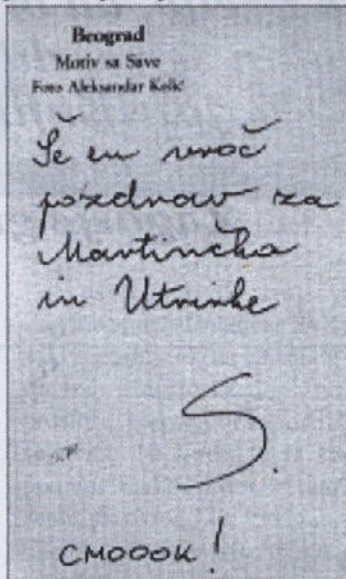 Beograd
Motiv sa Save
Foto Aleksandar Kelić
Še en vroč
pozdrav za
Martinčka
in Utrinke
S.
CMOOOK!